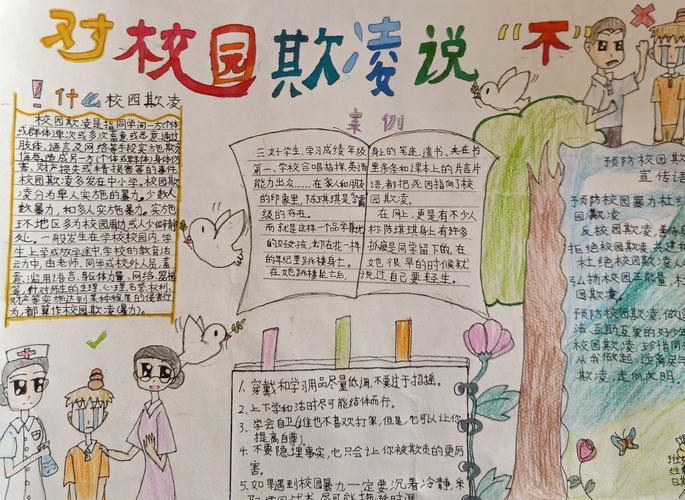 对校园欺凌说“不”
！什么校园欺凌
校园欺凌是指同学间一方(个体
或群体)单次或多次蓄意或恶意通过
肢体、语言及网络等手段实施欺负
侮辱,造成另一方(个体或群体)身体伤
害、财产损失或精神损害等的事件
校园欺凌多发在中小学。校园欺
凌分为单人实施的暴力,少数人
暴力,和多人实施暴力。实施
环地区多为校园周边或人少僻静
处。一般发生在学校校园内、学
生上学或放学途中、学校的教育活
动中,由老师、同学或校外人员,蓄
意滥用语言、躯体力量、网络、器械
等,针对师生的生理、心理、名誉、权利、
财产等实施达到某种程度的侵害行
为,都算作校园欺凌(暴力)。
案例
三女子学生,学习成绩年级
第一、学校合唱指挥,英语
能力出众……在家人和朋友
的印象里,陈琪琪是
级的存在。
而就是这样一个品学兼优
的女孩,却在花一样
的年纪里跳楼身亡。
在她跳楼坠亡后,
身上的笔庄、读书、夹在书
里条和课本上的片言片
语,都把死因指向了校
园欺凌。
在网上,更是有不少人
称陈琪琪身上有许多
扒痕是同学留下的,在
她很早的时候就
说过自己要轻生。
预防校园欺
宣传语
预防校园暴力杜绝
园欺凌
反校园欺凌,
拒绝校园欺凌,共建
杜绝校园欺凌人人
弘扬校园正能量,杜
园欺凌。
预防校园欺凌,做遵
法、互助互爱的好少年
校园欺凌,珍惜同
从我做起,远离戾气
欺凌,走向文明。
1.穿戴和学习用品尽量低调,不要过于招摇。
2.上下学和活时尽可能结体而行。
3.学会自卫(谁也不喜欢打架,但是,它可以让你
提高自尊)
4.不要隐埋事实,它只会让你被欺负的更厉
害。
5.如果遇到校园暴力一定要沉着冷静,采
取
班
姓